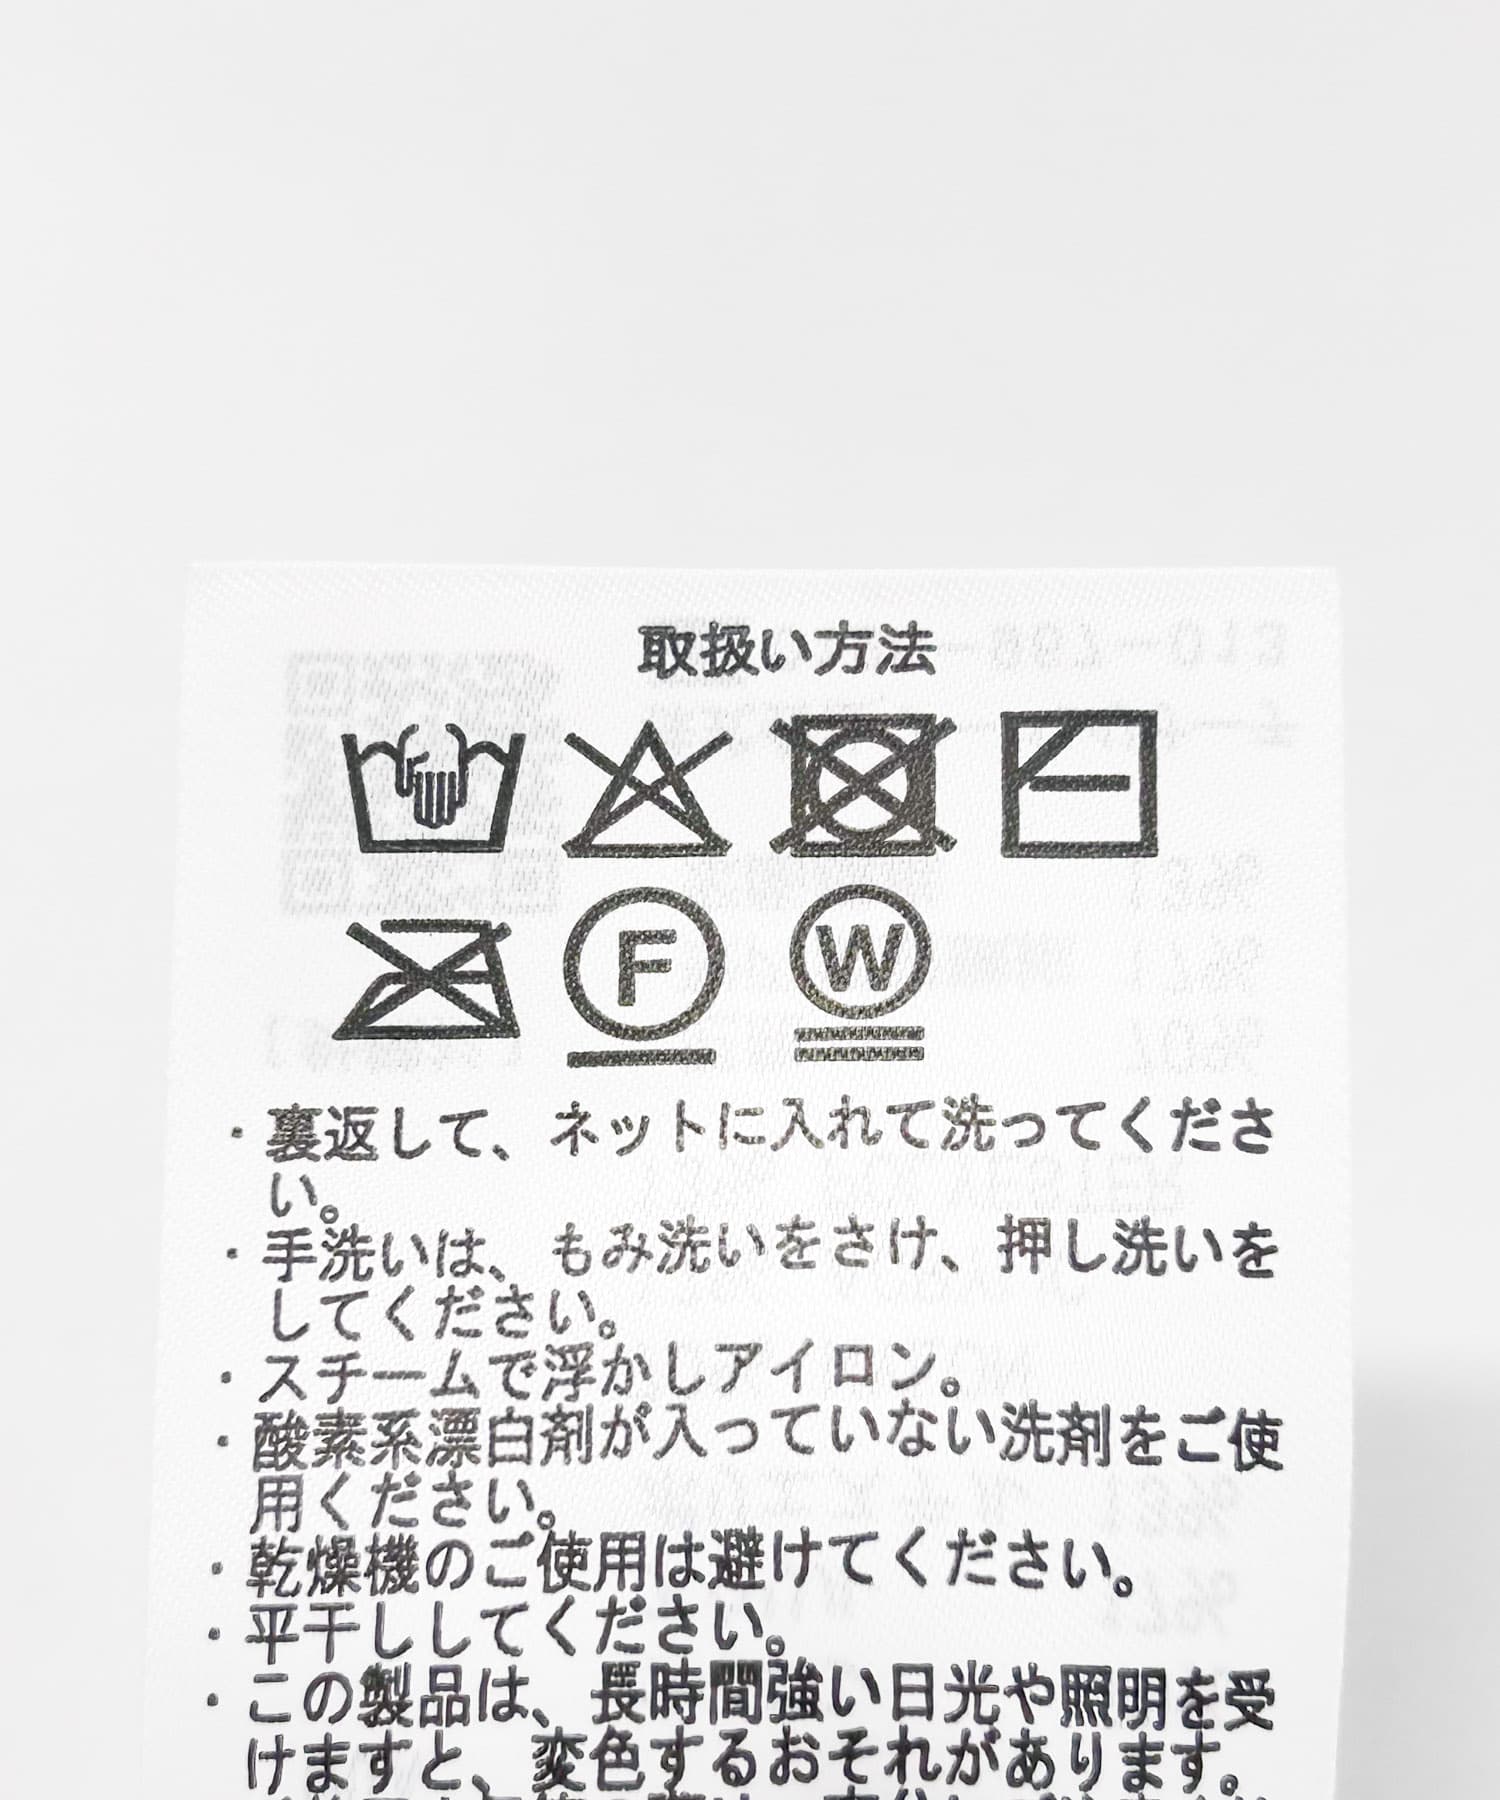 取扱い方法
F W
・裏返して、ネットに入れて洗ってくださ
い。
・手洗いは、もみ洗いをさけ、押し洗いを
してください。
・スチームで浮かしアイロン。
・酸素系漂白剤が入っていない洗剤をご使
用ください。
・乾燥機のご使用は避けてください。
・平干ししてください。
・この製品は、長時間強い日光や照明を受
けますと、変色するおそれがあります。